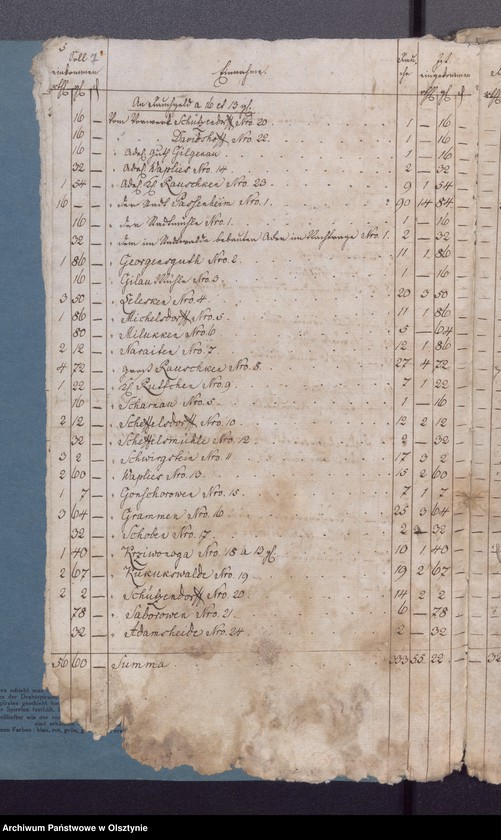 Soll
einkommen
Einnahme.
Rauche
Ist
eingekommen
An Rauchgeld a 16 et 13 gl.
16 — Vom Vorwerk Schützendorff Nro. 20 1 — 16 —
16 — Davidshoff Nro. 22. 1 — 16 —
16 — Adel. Guth Gilgenau 1 — 16 —
32 — Adel. Waplies Nro. 14. 2 — 32 —
1 54 — Adel. Rauschken Nro. 23. 9 1 54 —
16 — — der Stadt Passenheim Nro. 1. 90 14 84 —
16 — der Stadtmühle Nro. 1. 1 — 16 —
32 — dem im Stadtwalde bebauten Nro. 1. 2 — 32 —
1 86 — Georgensguth Nro. 2. 11 1 86 —
16 — Gilau Mühle Nro. 3. 1 — 16 —
3 50 — Nro. 4 20 3 50 —
1 86 — Michelsdorff Nro. 5. 11 1 86 —
80 — Milukken Nro. 6 5 — 64 —
2 12 — Naraiten Nro. 7 12 1 86 —
4 72 — groß Rauschken Nro. 8. 27 4 72 —
1 22 — Nro. 9. 7 1 22 —
16 — Scharnau Nro. 5 1 — 16 —
2 12 — Scheffelsdorff Nro. 10. 12 2 12 —
32 — Scheffelsmühle Nro. 12 2 — 32 —
3 2 — Schwirgstein Nro. 11 17 3 2 —
2 60 — Waplies Nro. 13. 15 2 60 —
1 7 — Gonschorowen Nro. 15. 7 1 7 —
3 64 — Grammen Nro. 16 25 3 64 —
32 — Schoben Nro. 17 2 — 32 —
1 40 — Krziwonoga Nro. 18 a 13 gl. 10 1 40 —
2 67 — Kukukswalde Nro. 19 19 2 67 —
2 2 — Schützendorff Nro. 20 14 2 2 —
78 — Saborowen Nro. 21. 6 — 78 —
32 — Adamsheide Nro. 24. 2 — 32 —
56 60 — Summa 333 55 22 —
Archiwum Państwowe w Olsztynie